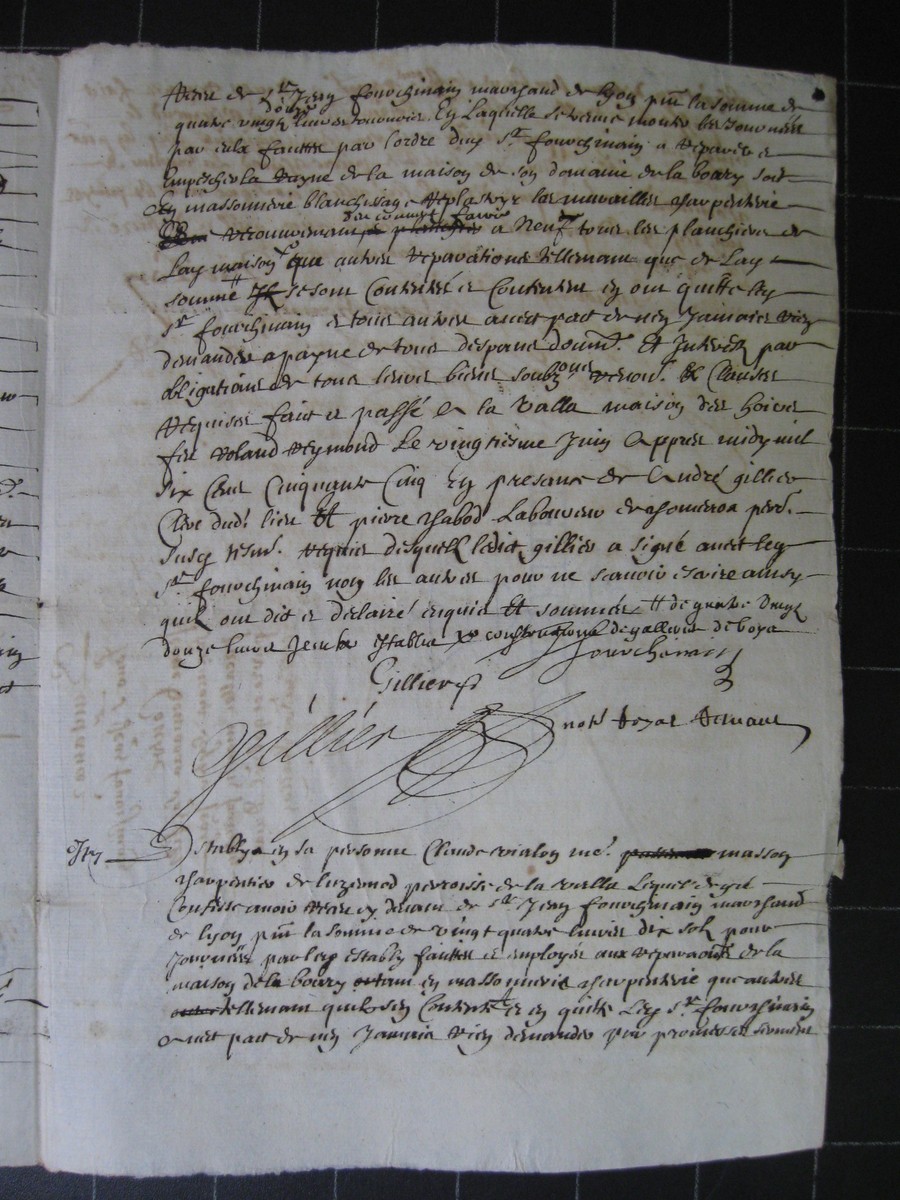 de Sr Jean fourchinain marchand de lyon pnt la somme de
quatre vingtz douze livres tournois En Laquelle se treuve monté les journées
par eulx faittes par l'ordre dud Sr fourchinain a réparer et
Empescher la de la maison de son domaine de la boury soit
En massonnerie blanchissage les murailles charpenterie
a Neuf tous les planchiers de
Lad maison que autres reparations tellement que de Lad
somme se sont Contentés et Contentent et en ont quitté led
Sr fourchinain et tous autres avect pact de n'en Jamais rien
demander a payne de tous despans domm. Et Interestz par
obligations de tous leurs biens soubz renon. & Clauses
requises fait et passé a la Valla maison des hoirs
feu Roland Reymond Le vingtiesme Juin Apprès midy mil
six Cent Cinquante Cinq En presance de André gillier
Clerc dud. lieu Et pierre chabod Laboureur de
tesm. requis desquelz Ledict gillier a signé avect led
Sr fourchinain non les autres pour ne scavoir escrire ainsy
quilz ont dit et déclairé enquis Et sommés # de quatre vingtz
douze livres de galleries de boys
fourchinain
Gillier
Gillier notre Royal
Estably en sa personne Claude vialon me. masson
charpentier de luzernod parroisse de la valla Lequel de gré
Confesse avoir receu cy devant de Sr Jean fourchinain marchand
de lyon pnt la somme de vingt quatre livres dix solz pour
Journées par led estably faittes et employés aux reparaons de la
maison de la boury en massonnerie charpenterie que autres
tellement quil s'en Contente et en quitte Led Sr fourchinain
avect pact de n'en Jamais rien demander par promesse serment